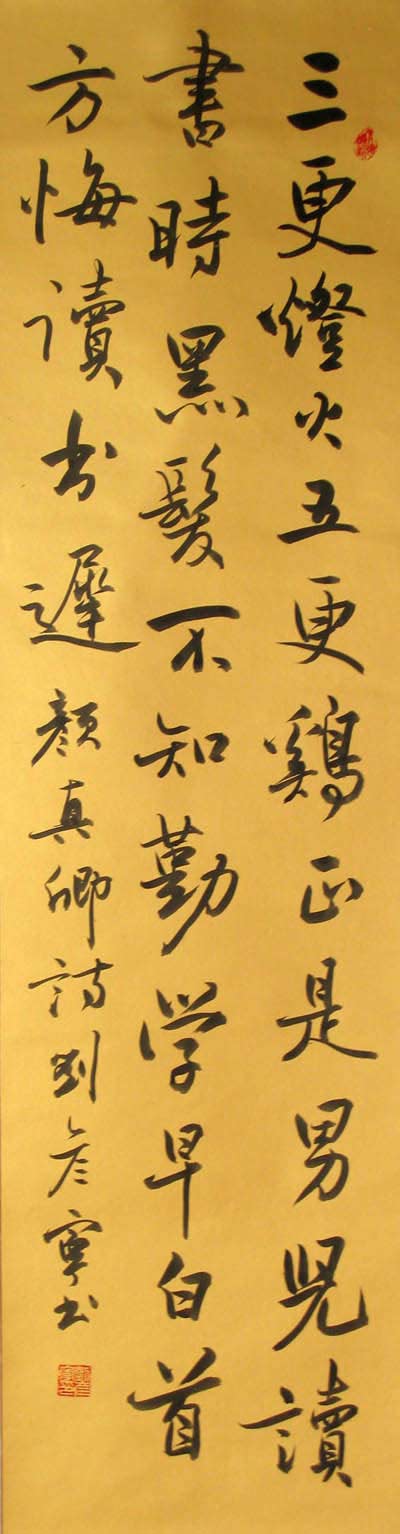 三更燈火五更鷄正是男児讀
書時黑髮不知勤学早白首
方悔讀书遲顔真卿詩刘彦寧书